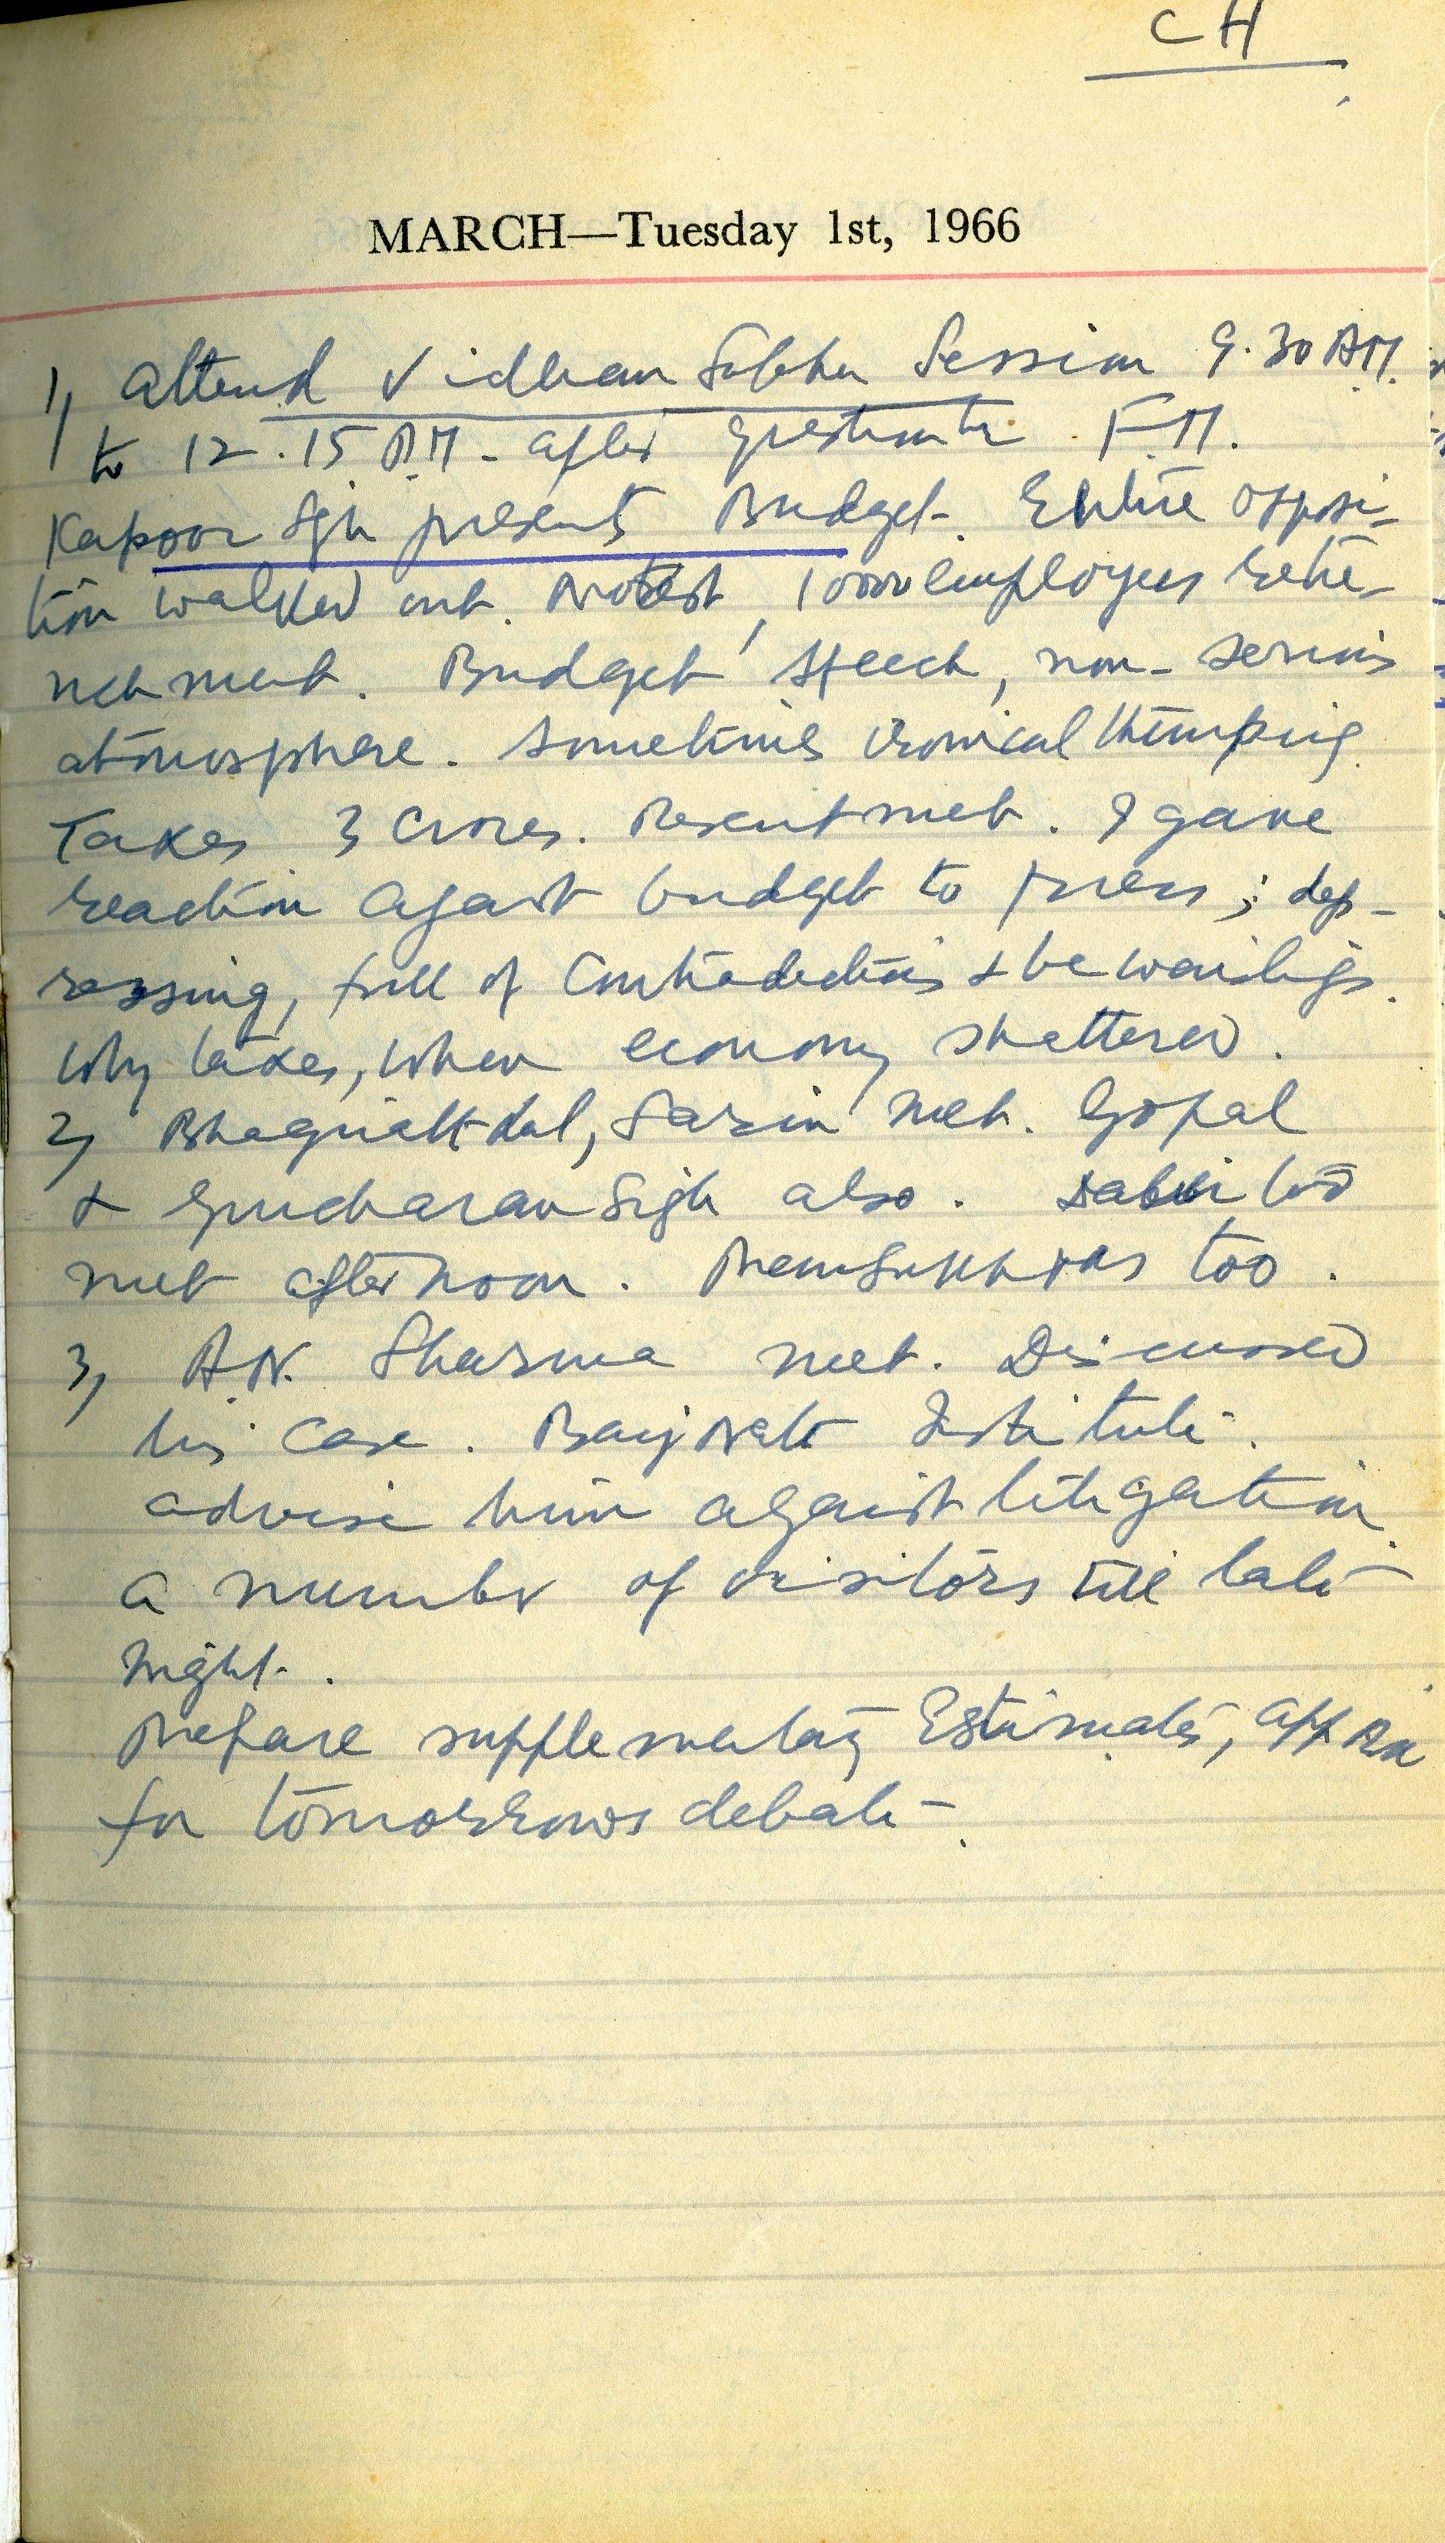 CH
MARCH—Tuesday 1st, 1966
1, Attend Vidhan Sabha Session 9.30 A.M.
to 12.15 P.M. after question hr F.M.
Kapoor Sgh presents Budget. Entire opposi-
tion walked out. Protest, 10000 employees retre-
nchment. Budget speech, non-serious
atmosphere. Sometimes ironical thumping.
Taxes 3 Crores. Resentment. I gave
reaction against budget to press; dep-
ressing, full of Contradictions & bewailings.
Why taxes, when economy shattered.
2, Lal, Sarin met. Gopal
& Gurcharan Sigh also. too
met afternoon. Prem Sukh Das too.
3, A.N. Sharma met. Discussed
his case. Baij Nath Institute.
advise him against litigation
a number of visitors till late
night.
Prepare supplementary Estimates,
for tomorrows debate.